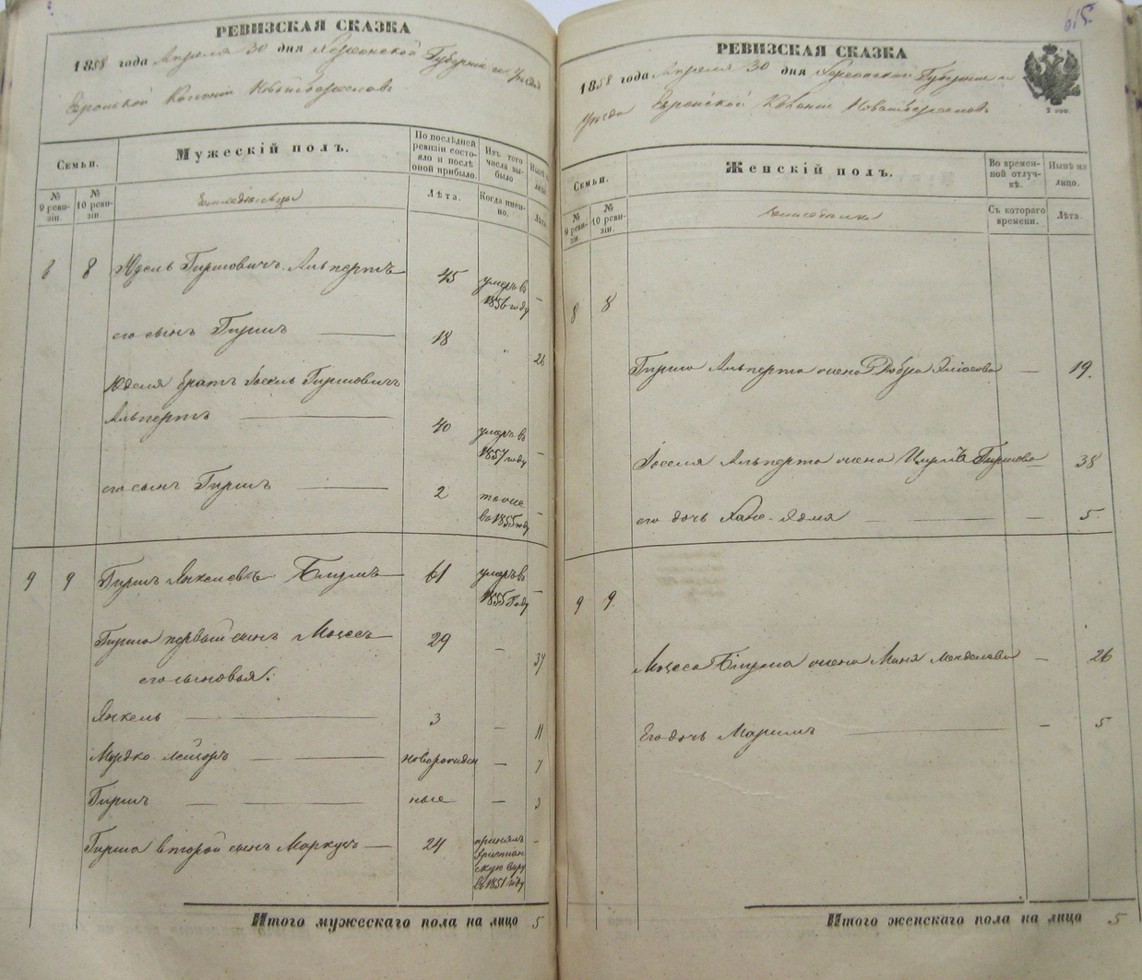 РЕВИЗСКАЯ СКАЗКА
1858 года Апреля 30 дня Херсонской Губернии и Уезда
Еврейской Колонии
Семьи.
№ 9 ревизіи.
№ 10 ревизіи
Мужескій полъ.
По послѣдней ревизіи состояло и послѣ оной прибыло.
Лѣта.
Изъ того числа выбыло
Когда именно.
Лѣта
8 8 Юдель Гиршовичъ Альпертъ 45 умеръ въ 1856 году -
его сынъ Гиршъ 18 "
Юделя братъ Іосель Гиршовичъ
Альпертъ 40 умеръ въ 1857 году -
его сынъ Гиршъ 2 тоже въ 1855 году -
9 9 Гиршъ Янкелевъ 61 умеръ въ 1855 году
Гирша первый сынъ Мовсесъ 29 - 37
его сыновья:
Янкель 3 - 11
Мордко новорожден - 7
Гиршъ ные - 3
Гирша второй сынъ Маркусъ 24 принялъ христианскую веру въ 1851 году -
Итого мужескаго пола на лицо 5
615.
РЕВИЗСКАЯ СКАЗКА
1858 года Апреля 30 дня Херсонской Губернии и
уезда Еврейской Колонии
Семьи.
№ 9 ревизіи.
№ 10 ревизіи
Женскій полъ.
Во временной отлучкѣ.
Съ котораго времени.
Нынѣ на лицо.
Лѣта.
8 8
Гирша Альперта жена Добра - 19.
Іоселя Альперта жена Гиршова 38
его дочь - 5
9 9.
жена Маня Менделева - 26
Его дочь - 5
Итого женскаго пола на лицо 5